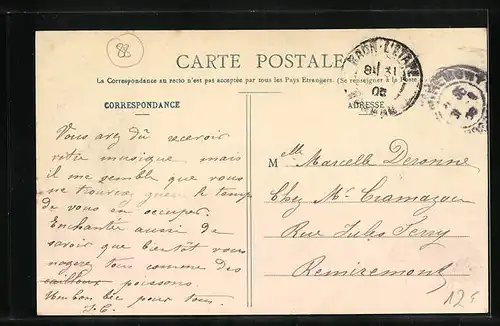 88
CARTE POSTALE
La Correspondance au recto n'est pas acceptée par tous les Pays Etrangers. (Se renseigner à la Poste
CORRESPONDANCE
ADRESSE
RAON-L'ETAPE
Vous avez dû recevoir
votre musique mais
il me semble que vous
ne trouvez guère le temps
de vous en occuper.
Enchantée aussi de
savoir que bientôt vous
nagerez tous comme des
cailloux poissons.
Un bon bec pour tous.
Mlle Marcelle Deronne
Chez Mr Cramazou
Rue Jules Ferry
Remiremont
125